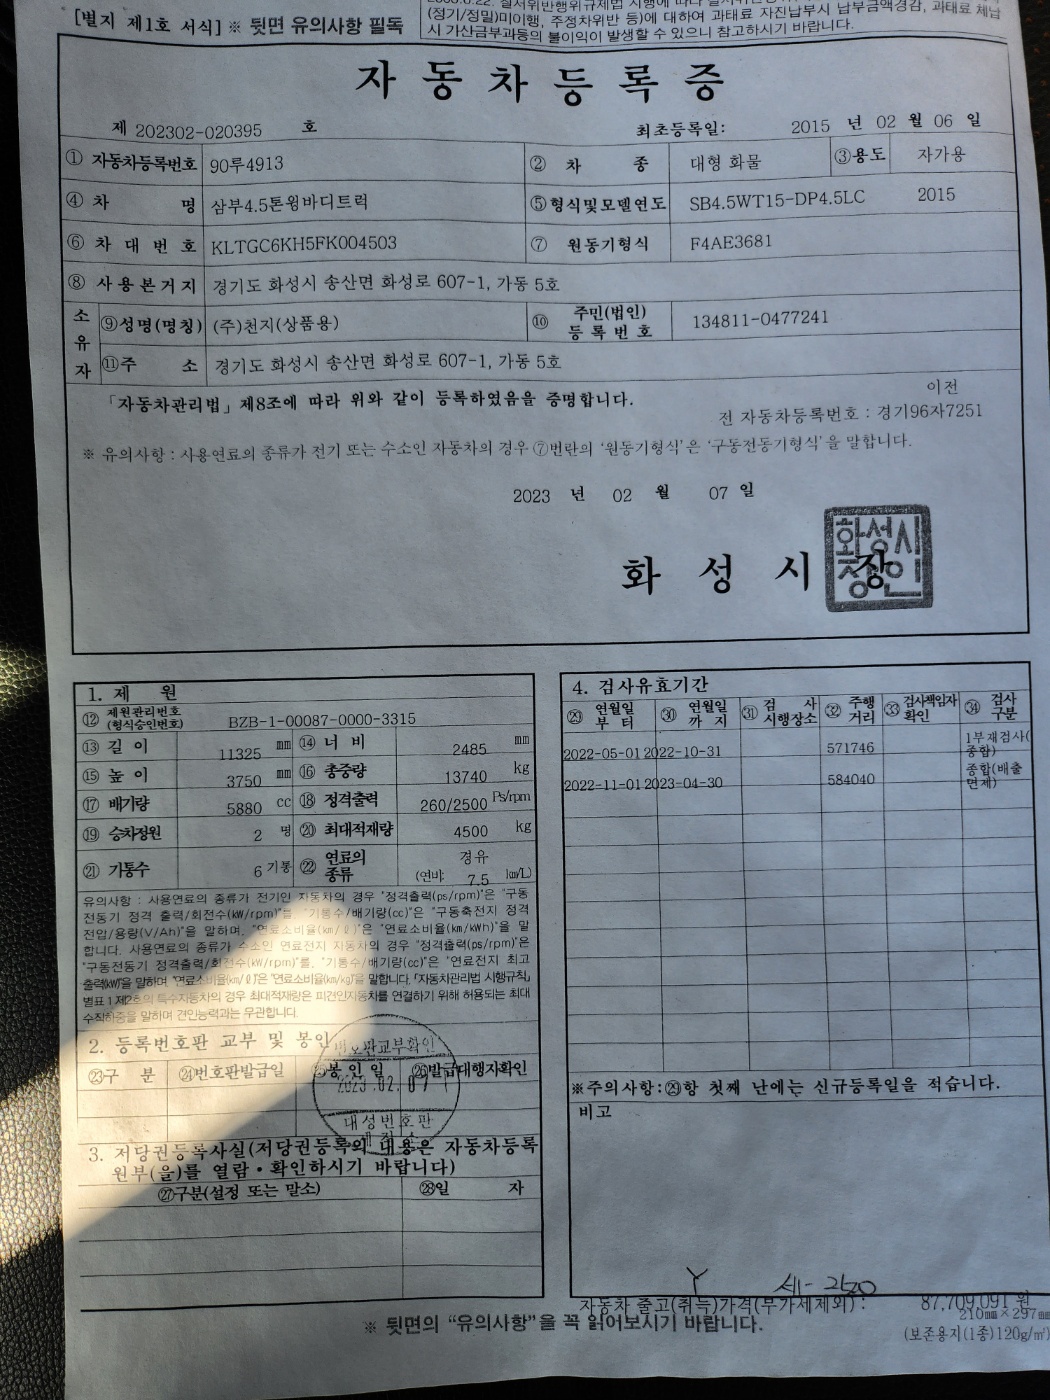 [별지 제1호 서식] ※ 뒷면 유의사항 필독
(정기/정밀)미이행, 주정차위반 등)에 대하여 과태료 자진납부시 납부금액경감, 과태료 체납
시 가산금부과등의 불이익이 발생할 수 있으니 참고하시기 바랍니다.
자동차등록증
제 202302-020395 호 최초등록일: 2015 년 02 월 06 일
① 자동차등록번호 90루4913 ② 차 종 대형 화물 ③용도 자가용
④ 차 명 삼부4.5톤윙바디트럭 ⑤형식및모델연도 SB4.5WT15-DP4.5LC 2015
⑥ 차 대 번 호 KLTGC6KH5FK004503 ⑦ 원동기형식 F4AE3681
⑧ 사 용 본 거 지 경기도 화성시 송산면 화성로 607-1, 가동 5호
소유자 ⑨성명(명칭) (주)천지(상품용) ⑩ 주민(법인)등록번호 134811-0477241
⑪주 소 경기도 화성시 송산면 화성로 607-1, 가동 5호
「자동차관리법」제8조에 따라 위와 같이 등록하였음을 증명합니다.
이전
전 자동차등록번호 : 경기96자7251
※ 유의사항 : 사용연료의 종류가 전기 또는 수소인 자동차의 경우 ⑦번란의 '원동기형식'은 '구동전동기형식'을 말합니다.
2023 년 02 월 07 일
화 성 시 장
화성시장인
1. 제 원
⑫ 제원관리번호(형식승인번호) BZB-1-00087-0000-3315
⑬ 길 이 11325 mm ⑭ 너 비 2485 mm
⑮ 높 이 3750 mm ⑯ 총중량 13740 kg
⑰ 배기량 5880 cc ⑱ 정격출력 260/2500 Ps/rpm
⑲ 승차정원 2 명 ⑳ 최대적재량 4500 kg
㉑ 기통수 6 기통 ㉒ 연료의 종류 경유 (연비 7.5 km/L)
유의사항 : 사용연료의 종류가 전기인 자동차의 경우 "정격출력(ps/rpm)"은 "구동
전동기 정격 출력/회전수(kW/rpm)"를, "기통수/배기량(cc)"은 "구동축전지 정격
전압/용량(V/Ah)"을 말하며, "연료소비율(km/ℓ)"은 "연료소비율(km/kWh)"을 말
합니다. 사용연료의 종류가 수소인 연료전지 자동차의 경우 "정격출력(ps/rpm)"은
"구동전동기 정격출력/회전수(kW/rpm)"를, "기통수/배기량(cc)"은 "연료전지 최고
출력(kW)"을 말하며 "연료소비율(km/ℓ)"은 "연료소비율(km/kg)"을 말합니다.「자동차관리법 시행규칙」
별표 1 제2호의 특수자동차의 경우 최대적재량은 피견인자동차를 연결하기 위해 허용되는 최대
수직하중을 말하며 견인능력과는 무관합니다.
2. 등록번호판 교부 및 봉인
㉓구 분 ㉔번호판발급일 ㉕봉 인 일 ㉖발급대행자확인
번호판교부확인
2023.02.07
대성번호판
3. 저당권등록사실(저당권등록의 내용은 자동차등록
원부(을)를 열람・확인하시기 바랍니다)
㉗구분(설정 또는 말소) ㉘일 자
4. 검사유효기간
㉙ 연월일부터 ㉚ 연월일까지 ㉛ 검사시행장소 ㉜ 주행거리 ㉝ 검사책임자확인 ㉞ 검사구분
2022-05-01 2022-10-31 571746 1부재검사(종합)
2022-11-01 2023-04-30 584040 종합(배출면제)
※주의사항:㉙항 첫째 난에는 신규등록일을 적습니다.
비고
자동차 출고(취득)가격(부가세제외) : 87,709,091 원
※ 뒷면의 "유의사항"을 꼭 읽어보시기 바랍니다.
210㎜×297㎜
(보존용지(1종)120g/㎡)